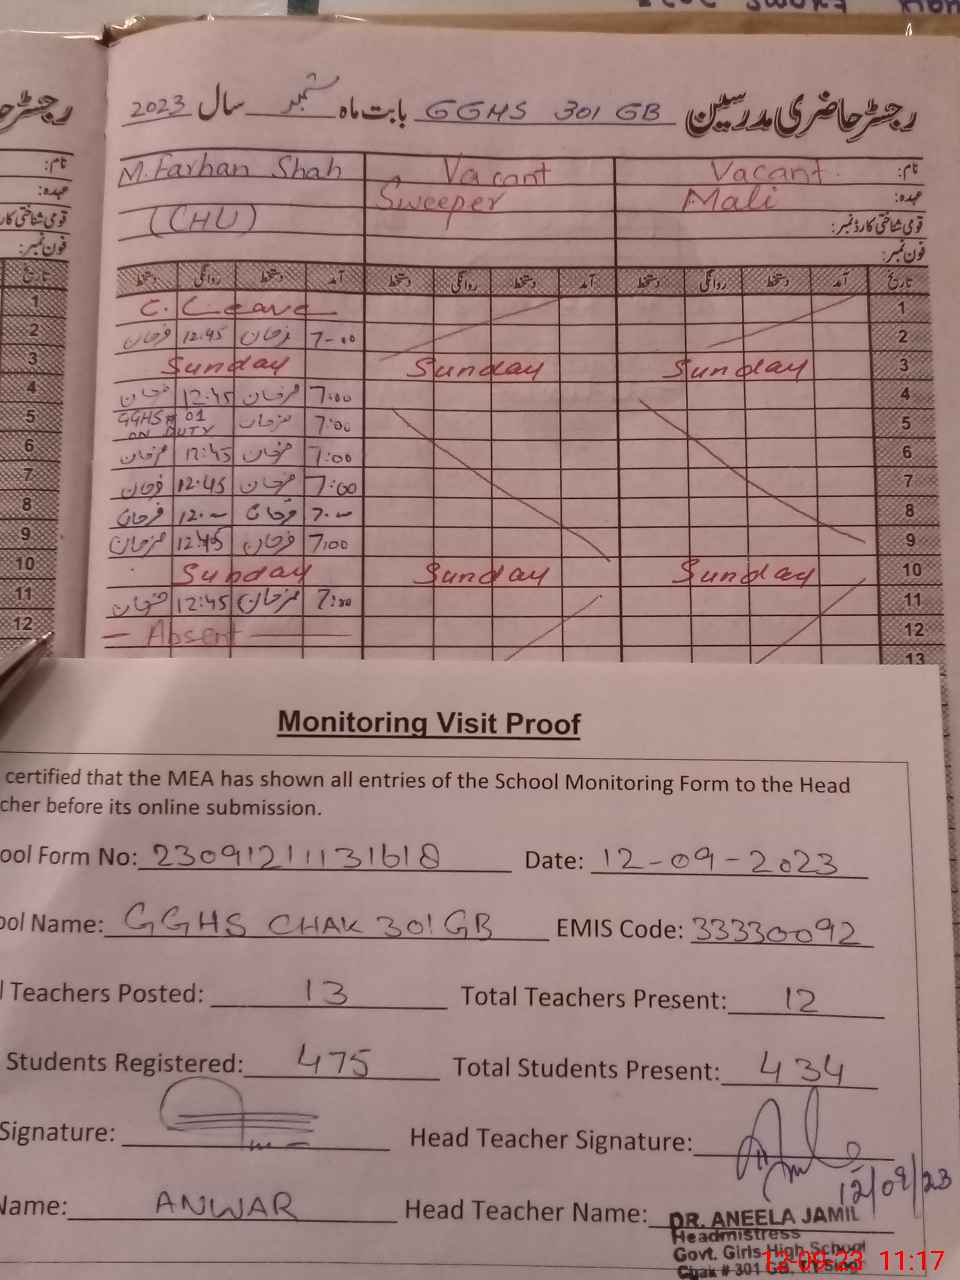 رجسٹر حاضری مدرسین GGHS 301 GB بابت ماہ ستمبر سال 2023
نام: Vacant Vacant M. Farhan Shah
عہدہ: Mali Sweeper
قومی شناختی کارڈ نمبر: (CHU)
فون نمبر:
تاریخ آمد دستخط روانگی دستخط آمد دستخط روانگی دستخط آمد دستخط روانگی دستخط
1 C. Leave
2 7-00 فرحان 12.45 فرحان
3 Sunday Sunday Sunday
4 7:00 فرحان 12.45 فرحان
5 7:00 فرحان GGHS # 01 ON DUTY
6 7:00 فرحان 12:45 فرحان
7 7:00 فرحان 12.45 فرحان
8 7.00 فرحان 12.00 فرحان
9 7,00 فرحان 12:45 فرحان
10 Sunday Sunday Sunday
11 7:00 فرحان 12:45 فرحان
12 Absent
13
Monitoring Visit Proof
certified that the MEA has shown all entries of the School Monitoring Form to the Head
cher before its online submission.
ool Form No: 23091211131618 Date: 12-09-2023
ool Name: GGHS CHAK 301 GB EMIS Code: 33330092
l Teachers Posted: 13 Total Teachers Present: 12
Students Registered: 475 Total Students Present: 434
Signature: Head Teacher Signature:
12/09/23
Name: ANWAR Head Teacher Name: DR. ANEELA JAMIL
Headmistress
Govt. Girls High School
Chak # 301 GB,
12-09-23 11:17